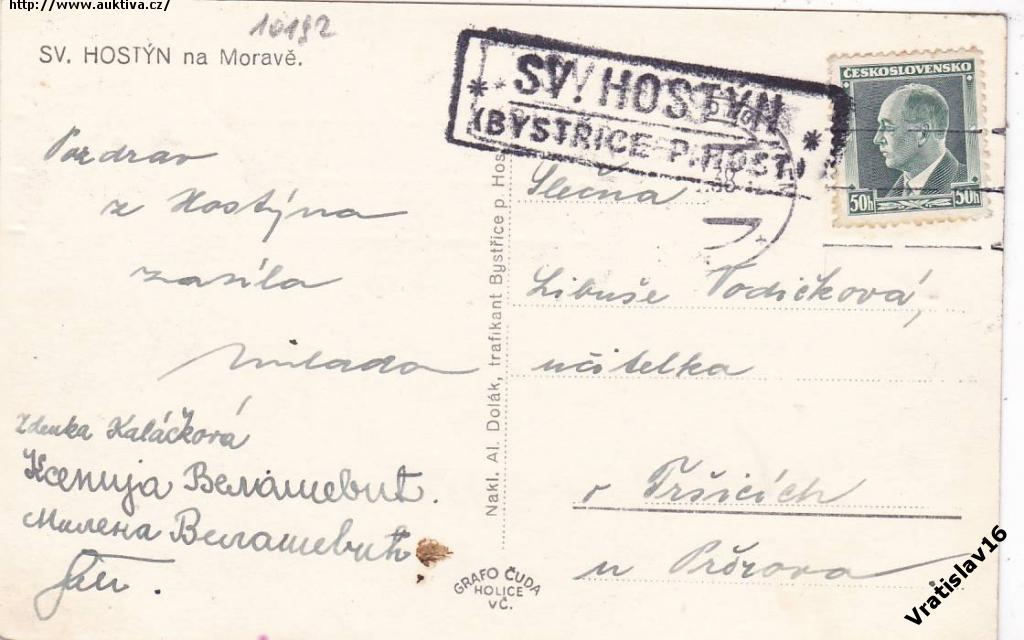 http://www.auktiva.cz/
10192
SV. HOSTÝN na Moravě.
Pozdrav
z Hostýna
zasílá
Milada
Zdenka Kaláčková
Ксенија Велашевић.
Милена Велашевић
Nakl. Al. Dolák, trafikant Bystřice p Hos
GRAFO ČUDA
HOLICE
VČ.
* SV. HOSTÝN *
(BYSTŘICE P. HOST.)
ČESKOSLOVENSKO
50h 50h
Slečna
Libuše Vodičková,
učitelka
v Tršicích
u Přerova
Vratislav16